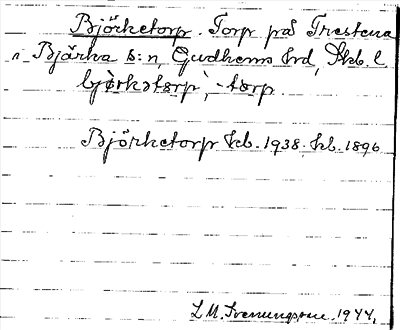 Björketorp. Torp på Trestena
i Bjärka s:n, Gudhems hrd, Skb. l.
bjö̀rkətɷrp, -tɷrp.
Björketorp kb. 1938. kb. 1896
L. M. Svenungsson. 1944.